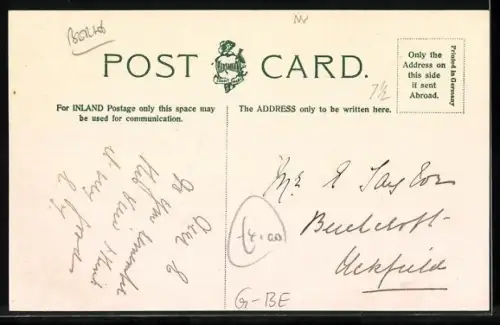 POST CARD.
For INLAND Postage only this space may
be used for communication.
The ADDRESS only to be written here.
Only the
Address on
this side
if sent
Abroad.
Printed in Germany
7½
Dear E
Do you remember
this View I think
it very
good
Taylor
Uckfield
£4.00
G-BE